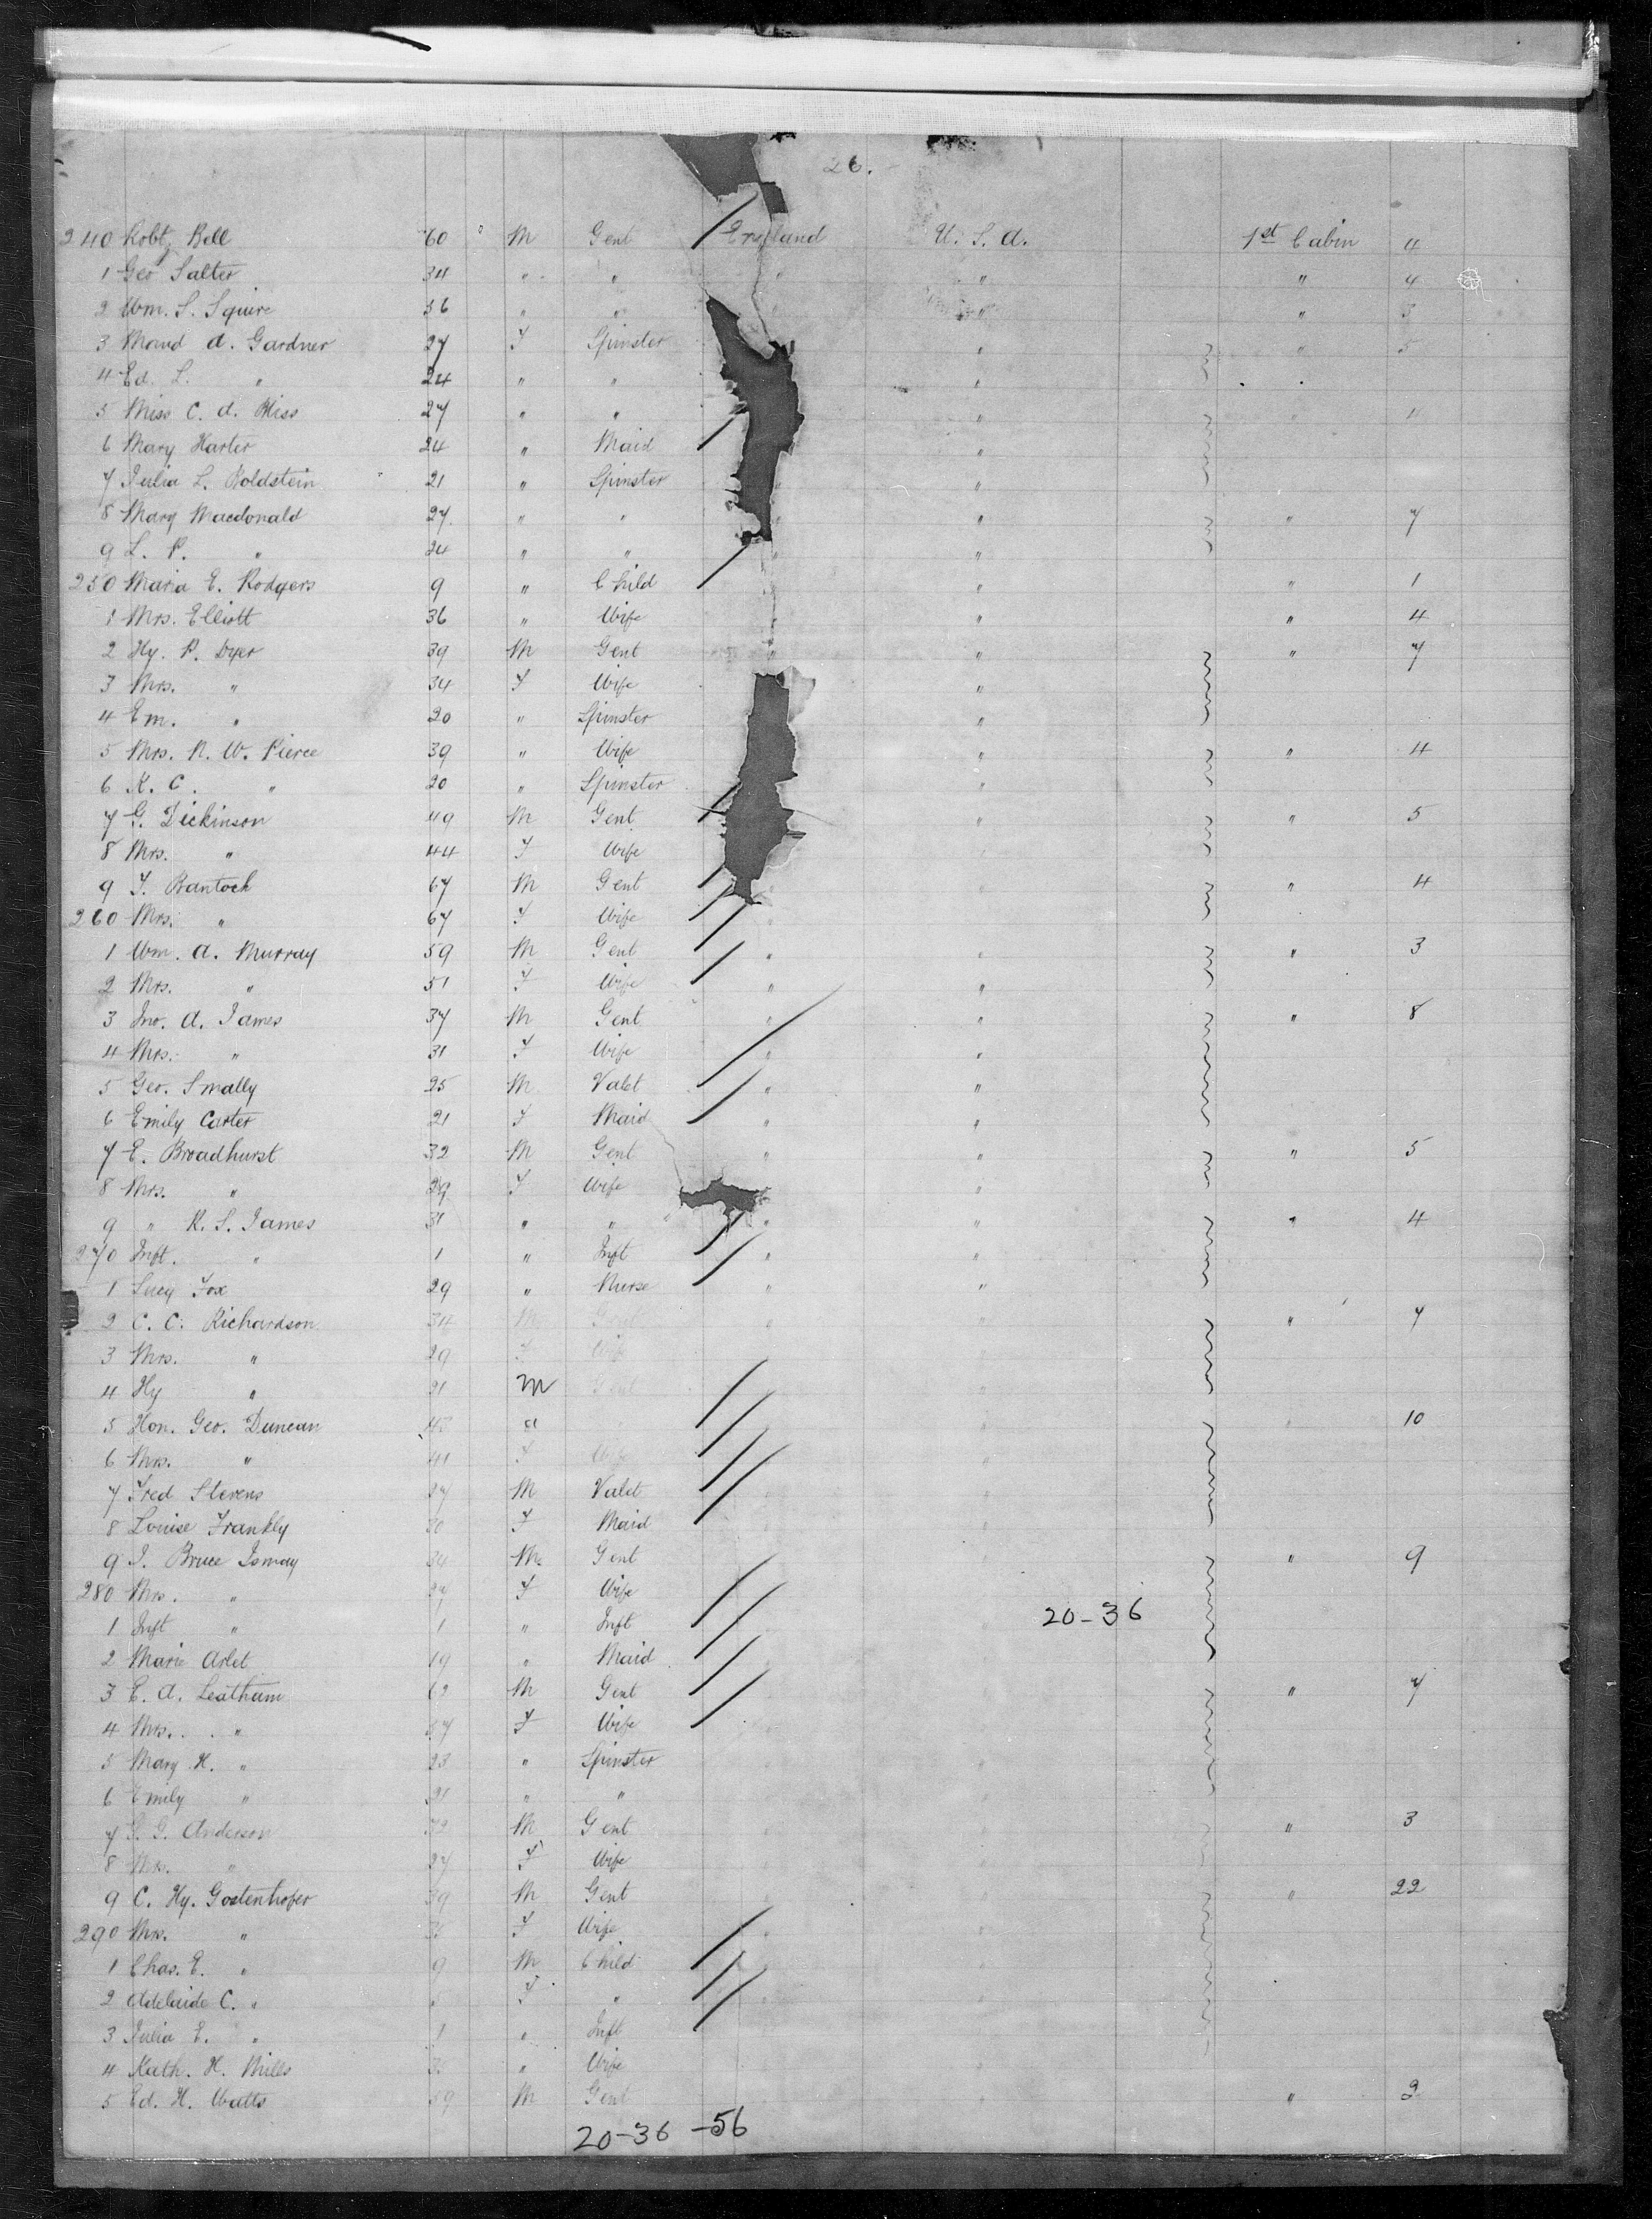 26.
240 Robt. Bell 60 " M Gent England U. S. A. 1st Cabin 4
1 Geo Salter 34 " " " " " 4
2 Wm. S. Squire 56 " " " " " 3
3 Maud A. Gardner 27 F Spinster " " 5
4 Ed. L. " 24 " " "
5 Miss C. A. Bliss 27 " " " " 4
6 Mary Harter 24 " Maid "
7 Julia L. Goldstein 21 " Spinster " "
8 Mary Macdonald 27 " " " " " 7
9 L. P. " 24 " " " "
250 Maria E. Rodgers 9 " Child " " 1
1 Mrs. Elliott 36 " Wife " " " 4
2 Hy. P. Dyer 39 M Gent " " " 7
3 Mrs. " 34 F Wife "
4 Em. " 20 " Spinster "
5 Mrs. N. W. Pierce 39 " Wife " " 4
6 K. C. " 20 " Spinster "
7 G. Dickinson 49 M Gent " " 5
8 Mrs. " 44 F Wife "
9 T. Bantock 67 M Gent " " " 4
260 Mrs. " 67 F Wife " "
1 Wm. A. Murray 59 M Gent " " " 3
2 Mrs. " 51 F Wife " "
3 Jno. A. James 37 M Gent " " " 8
4 Mrs. " 31 F Wife " "
5 Geo. Smally 25 M Valet " "
6 Emily Carter 21 F Maid " "
7 E. Broadhurst 32 M Gent " " " 5
8 Mrs. " 29 F Wife "
9 " R. S. James 31 " " " " " 4
270 Inft. " 1 " Inft " "
1 Lucy Fox 29 " Nurse " "
2 C. C. Richardson 34 M Gent " " " 7
3 Mrs. " 29 F Wife "
4 Hy " 21 M Gent "
5 Hon. Geo. Duncan " " " 10
6 Mrs. " 41 F Wife "
7 Fred Stevens 27 M Valet
8 Louise Frankly 30 F Maid
9 J. Bruce Ismay 34 M Gent " 9
280 Mrs. " 27 F Wife
20-36
1 Inft " 1 " Inft
2 Marie Arlet 19 " Maid
3 E. A. Leatham 62 M Gent " 7
4 Mrs. " 57 F Wife
5 Mary H. " 23 " Spinster
6 Emily " 21 " "
7 Anderson 32 M Gent " 3
8 Mrs. " 27 F Wife
9 C. Hy. Gostenhofer 39 M Gent " 22
290 Mrs. " F Wife
1 Chas. E. " 9 M Child
2 Adelaide C. " F "
3 Julia E. " 1 " Inft
4 Kath. H. Mills " Wife
5 Ed. H. Watts 59 M Gent " 3
20-36 -56